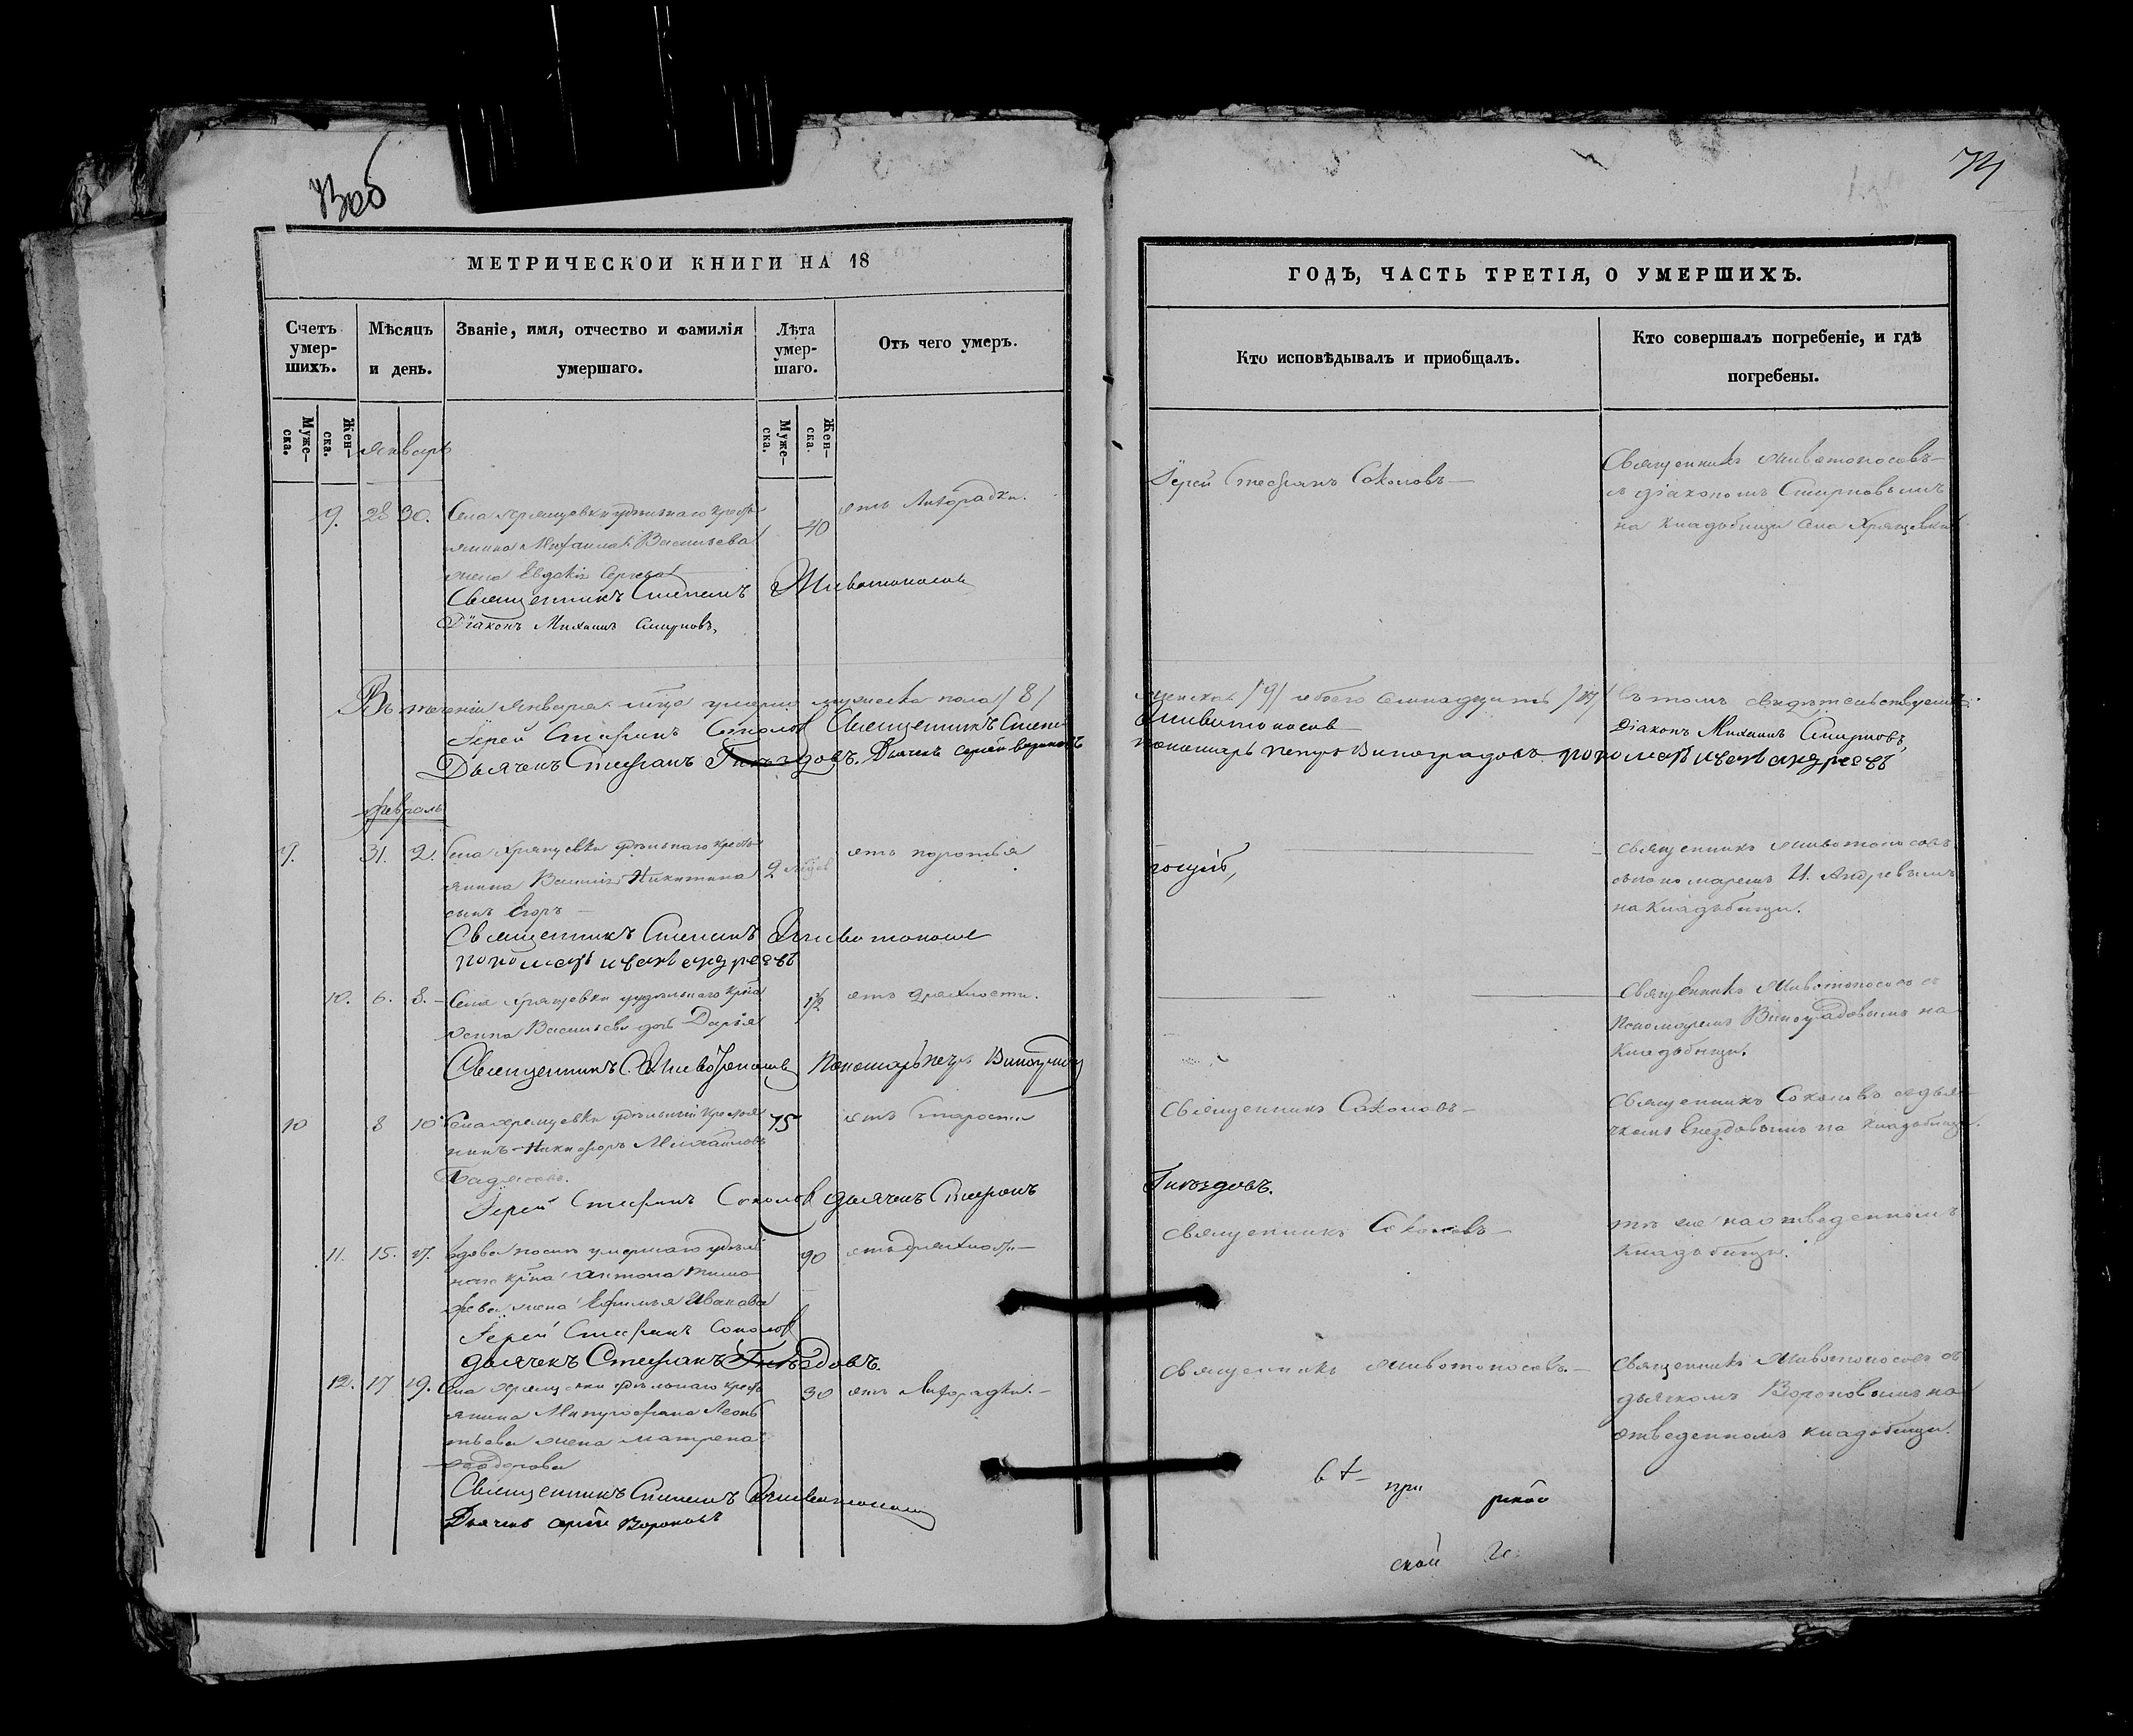 74
МЕТРИЧЕСКОЙ КНИГИ НА 18
Счетъ умер-шихъ.
Мѣсяцъ и день.
Званіе, имя, отчество и фамилія умершаго.
Лѣта умер-шаго.
Отъ чего умеръ.
Муже-ска.
Жен-ска.
Муже-ска.
Жен-ска.
Январь
9. 28 30. Села Хрящевки удѣльнаго кресть
янина Михаила Васильева
жена Евдокія Сергѣева
40
отъ Лихорадки.
Священникъ Симеонъ Животоносовъ
Діаконъ Михаилъ Смирновъ,
Въ теченіи Января м-ца умерло мужеска пола /8/
Іерей Стефанъ Соколовъ Священникъ Симеонъ
Дьячекъ Стефанъ Гнѣздовъ. Дьячекъ Сергій Вороновъ
Февраль
9. 31. 2. Села Хрящевки удѣльнаго кресть
янина Василія Никитина
сынъ Егоръ
отъ поротья
Священникъ Симеонъ Животоносов
пономарь Иванъ Андреевъ
10. 6. 8. Села Хрящевки удѣльнаго кр-на
Васильева дочь Дарья
отъ дряхлости.
Священникъ С Животоносовъ Пономарь Петръ Виноградов
10 8 10 Села Хрящевки удѣльный крестья
нинъ Никифоръ Михайловъ
75
отъ Старости
Іерей Стефанъ Соколов дьячекъ Стефанъ
11. 15. 17. вдова послѣ умершаго удѣль
наго кр-на Антона Тимо
фѣева жена Ефимья Иванова
90
отъ дряхлости
Іерей Стефанъ Соколов
дьячекъ Стефанъ Гнѣздовъ.
12. 17 19. Села Хрящевки удѣльнаго кресть
янина Митрофана Леонь
тьева жена Матрена
30
отъ Лихорадки.
Священникъ Симеонъ Животоносов
Дьячекъ Сергій Вороновъ
ГОДЪ, ЧАСТЬ ТРЕТІЯ, О УМЕРШИХЪ.
Кто исповѣдывалъ и приобщалъ.
Кто совершалъ погребеніе, и гдѣ погребены.
Іерей Стефанъ Соколовъ
Священникъ Животоносовъ
съ діакономъ Смирновымъ
на кладбищи села Хрящевки
женска /9/ обоего семнадцать /17/ въ томъ свидѣтельствуемъ:
Животоносов
Діаконъ Михаилъ Смирновъ,
пономарь Петръ Виноградовъ пономарь Иванъ Андреевъ
священникъ Животоносовъ
съ пономаремъ И. Андреевымъ
на кладбищи.
Священникъ Животоносовъ съ
Пономаремъ Виноградовымъ на
кладбищи.
Священникъ Соколовъ
Священникъ Соколовъ съ дья
чкомъ Гнездовымъ на кладбищи.
Гнѣздовъ.
Священникъ Соколовъ
тѣ же на отведенномъ
кладбищи.
Священникъ Животоносовъ.
Священникъ Животоносовъ съ
дьячкомъ Вороновымъ на
отведенномъ кладбищи.
при
ской